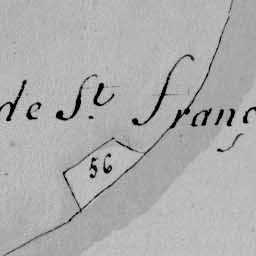 de S.t Franç
56